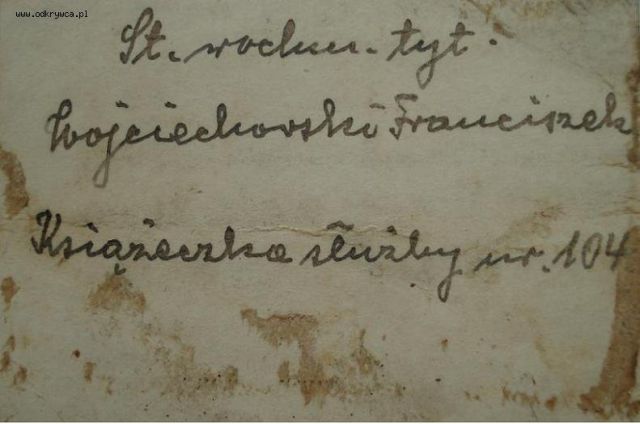 www.odkrywca.pl
St. wachm. tyt.
Wojciechowski Franciszek
Książeczka służby nr. 104